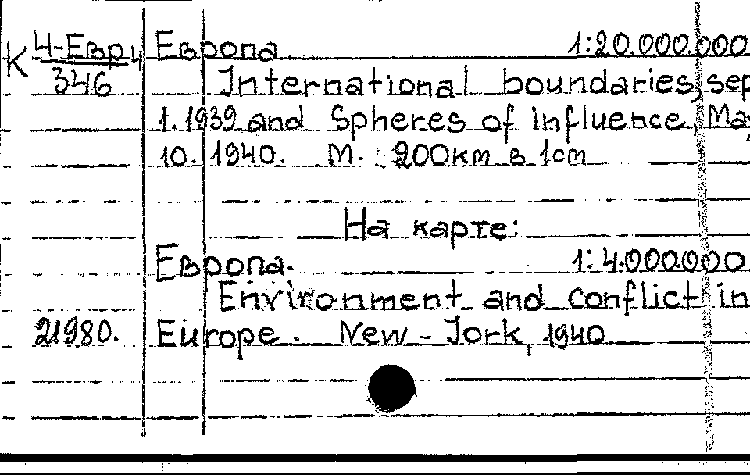 К 4-Евр Европа 1:20.000.000
346 International boundaries, sep
1.1939 and Spheres of influence, Ma
10. 1940. М. : 200км в 1см
На карте:
Европа. 1:4.000000
Environment and conflict in
21980. Europe. New-Jork, 1940